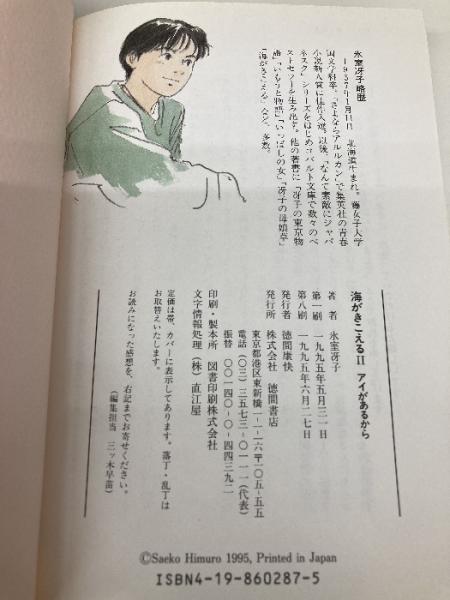 氷室冴子略歴
1957年1月11日 北海道生まれ。藤女子大学
国文学科卒。「さよならアルルカン」で集英社の青春
小説新人賞に佳作入選。以後、「なんて素敵にジャパ
ネスク」シリーズをはじめコバルト文庫で数々のベ
ストセラーを生み出す。他の著書に「冴子の東京物
語」「いもうと物語」「いっぱしの女」「冴子の母娘草」
「海がきこえる」など、多数。
海がきこえるⅡ アイがあるから
著者 氷室冴子
第一刷 一九九五年五月三一日
第八刷 一九九五年六月二七日
発行者 徳間康快
発行所 株式会社 徳間書店
東京都港区東新橋一-一-一六〒一〇五-五五
電話(〇三)三五七三-〇一一一(代表)
振替 〇〇一四〇-〇-四四三九二
印刷・製本所 図書印刷株式会社
文字情報処理(株)直江屋
定価は帯、カバーに表示してあります。落丁・乱丁は
お取替えいたします。
お読みになった感想を、右記までお寄せください。
(編集担当 三ッ木早苗)
©Saeko Himuro 1995, Printed in Japan
ISBN4-19-860287-5